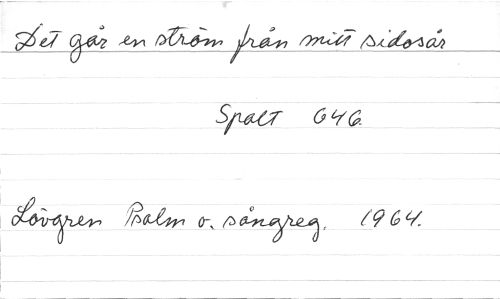 Det går en ström från mitt sidosår
Spalt 646
Lövgren Psalm o. sångreg. 1964.